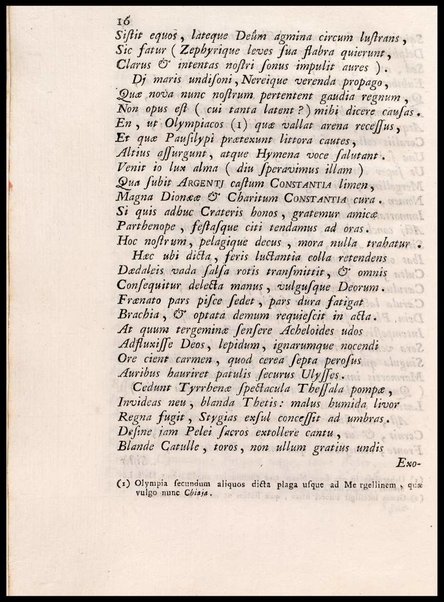 16
Sistit equos, lateque Deûm agmina circum lustrans,
Sic fatur (Zephyrique leves sua flabra quierunt,
Clarus & intentas nostri sonus impulit aures).
Dj maris undisoni, Nereique verenda propago,
Quæ nova nunc nostrum pertentent gaudia regnum,
Non opus est (cui tanta latent?) mihi dicere causas.
En, ut Olympiacos (1) quæ vallat arena recessus,
Et quæ Pausilypi prætexunt littora cautes,
Altius assurgunt, atque Hymena voce salutant.
Venit io lux alma (diu speravimus illam)
Qua subit ARGENTJ castum CONSTANTIA limen,
Magna Dionææ & Charitum CONSTANTIA cura.
Si quis adhuc Crateris honos, gratemur amicæ
Parthenope, festasque citi tendamus ad oras.
Hoc nostrum, pelagique decus, mora nulla trahatur.
Hæc ubi dicta, feris luctantia colla retendens
Dædaleis vada salsa rotis transmittit, & omnis
Consequitur delecta manus, vulgusque Deorum.
Frænato pars pisce sedet, pars dura fatigat
Brachia, & optata demum requiescit in acta.
At quum tergeminæ sensere Acheloides udos
Adfluxisse Deos, lepidum, ignarumque nocendi
Ore cient carmen, quod cerea septa perosus
Auribus hauriret patulis securus Ulysses.
Cedunt Tyrrhenæ spectacula Thessala pompæ,
Invideas neu, blanda Thetis: malus humida livor
Regna fugit, Stygias exsul concessit ad umbras.
Desine jam Pelei sacros extollere cantu,
Blande Catulle, toros, non ullum gratius undis
Exo-
(1) Olympia secundum aliquos dicta plaga usque ad Mergellinem, quæ
vulgo nunc Chiaja.